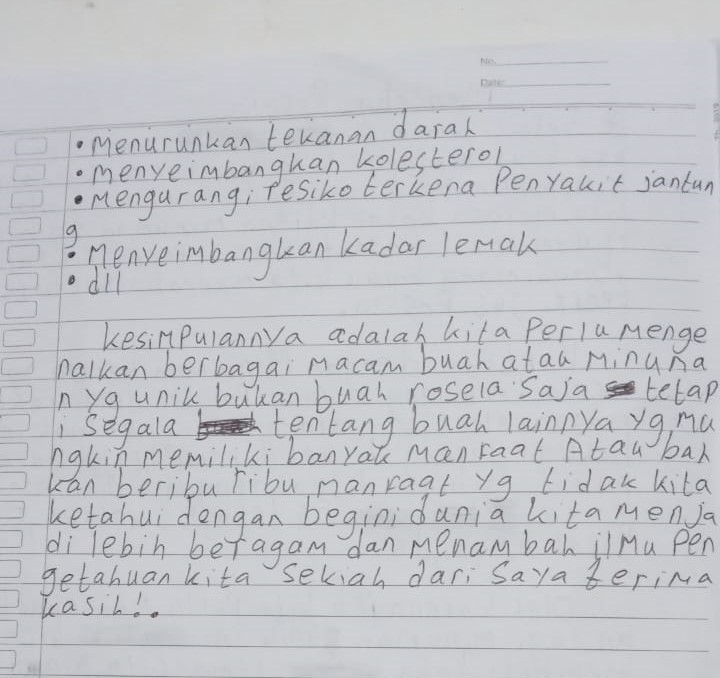 No.
Date:
• Menurunkan tekanan darah
• menyeimbangkan kolesterol
• Mengurangi resiko terkena Penyakit jantun
g
• Menyeimbangkan kadar lemak
• dll
kesimpulannya adalah kita Perlu Menge
nalkan berbagai Macam buah atau Minuma
n yg unik bukan buah rosela saja tetap
i segala tentang buah lainnya yg mu
ngkin memiliki banyak Manfaat Atau bah
kan beribu ribu manfaat yg tidak kita
ketahui dengan begini dunia kita menja
di lebih beragam dan Menambah ilmu Pen
getahuan kita sekiah dari saya terima
kasih!.